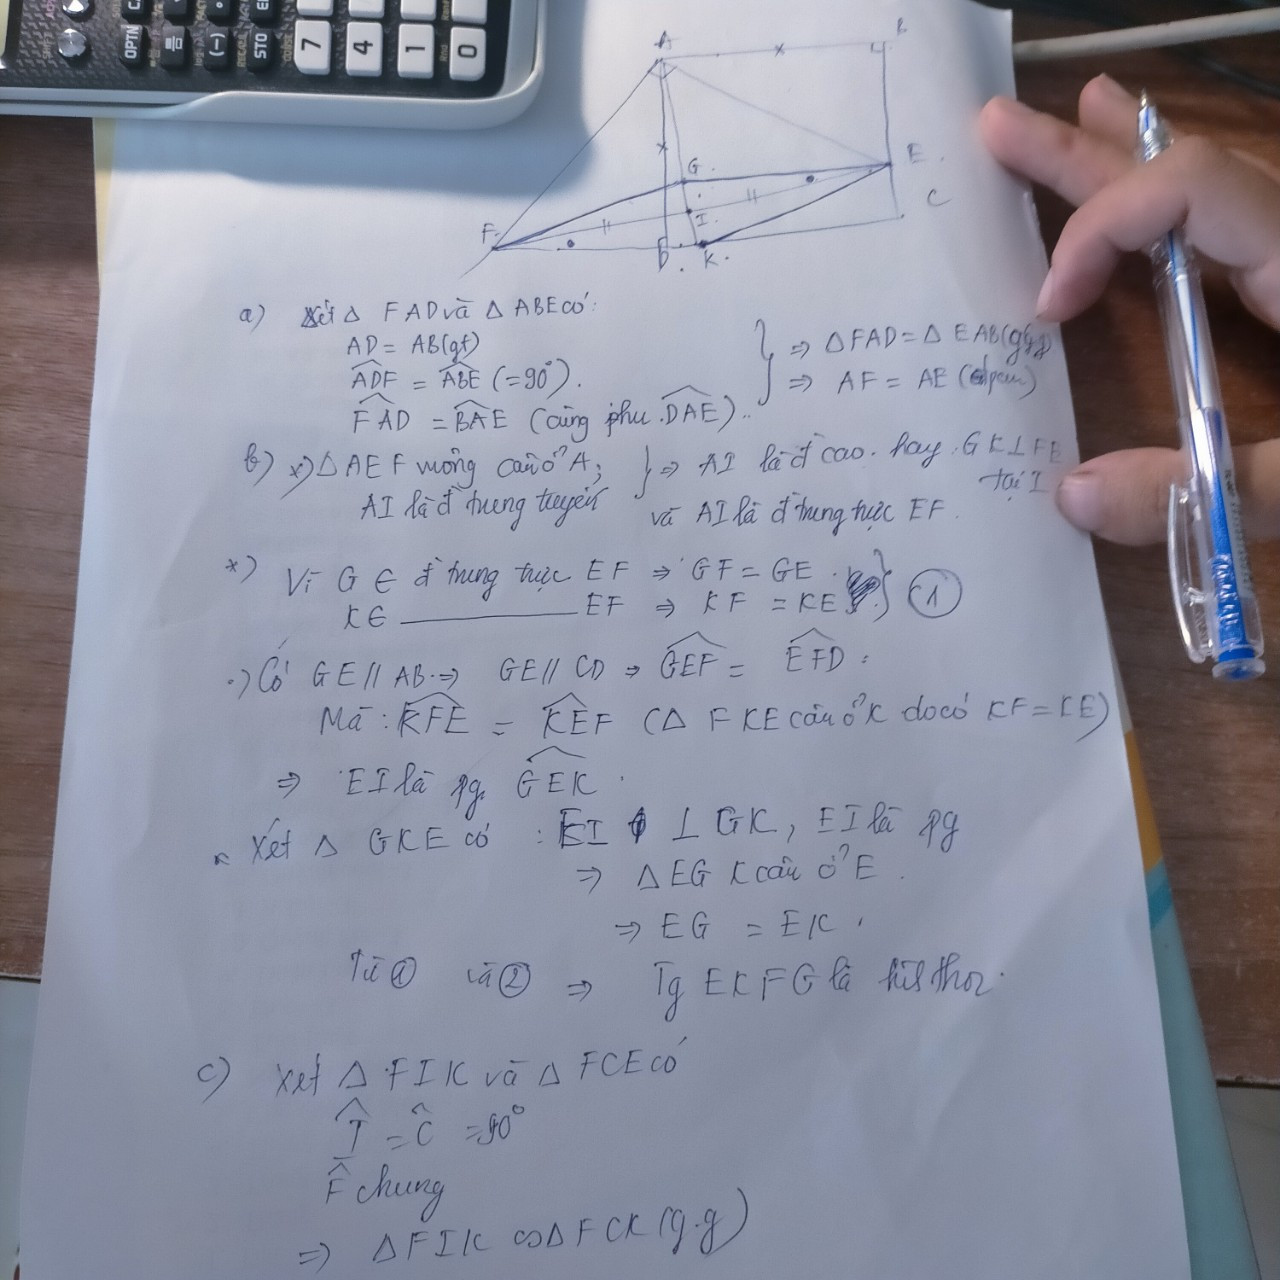 OPTN
(-)
STO
7
4
1
0
A
E
G
C
I
F
D
K
a) Xét Δ FAD và Δ ABE có:
AD = AB (gt)
ADF = ABE (= 90°).
FAD = BAE (cùng phụ DAE).
⇒ Δ FAD = Δ EAB
⇒ AF = AE
b) *) Δ AEF vuông cân ở A;
AI là đ trung tuyến
⇒ AI là đ cao. hay GK ⊥ FE
tại I
và AI là đ trung trực EF.
*) Vì G ∈ đ trung trực EF ⇒ GF = GE
K ∈ ——— EF ⇒ KF = KE
①
.) Có GE // AB ⇒ GE // CD ⇒ GEF = EFD
Mà: KFE = KEF (Δ FKE cân ở K do có KF = KE)
⇒ EI là pg GEK
Xét Δ GKE có: EI ⊥ GK, EI là pg
⇒ Δ EGK cân ở E.
⇒ EG = EK.
Từ ① và ② ⇒ Tg EKFG là hình thoi.
c) Xét Δ FIK và Δ FCE có
I = C = 90°
F chung
⇒ Δ FIK ∽ Δ FCK (g.g)